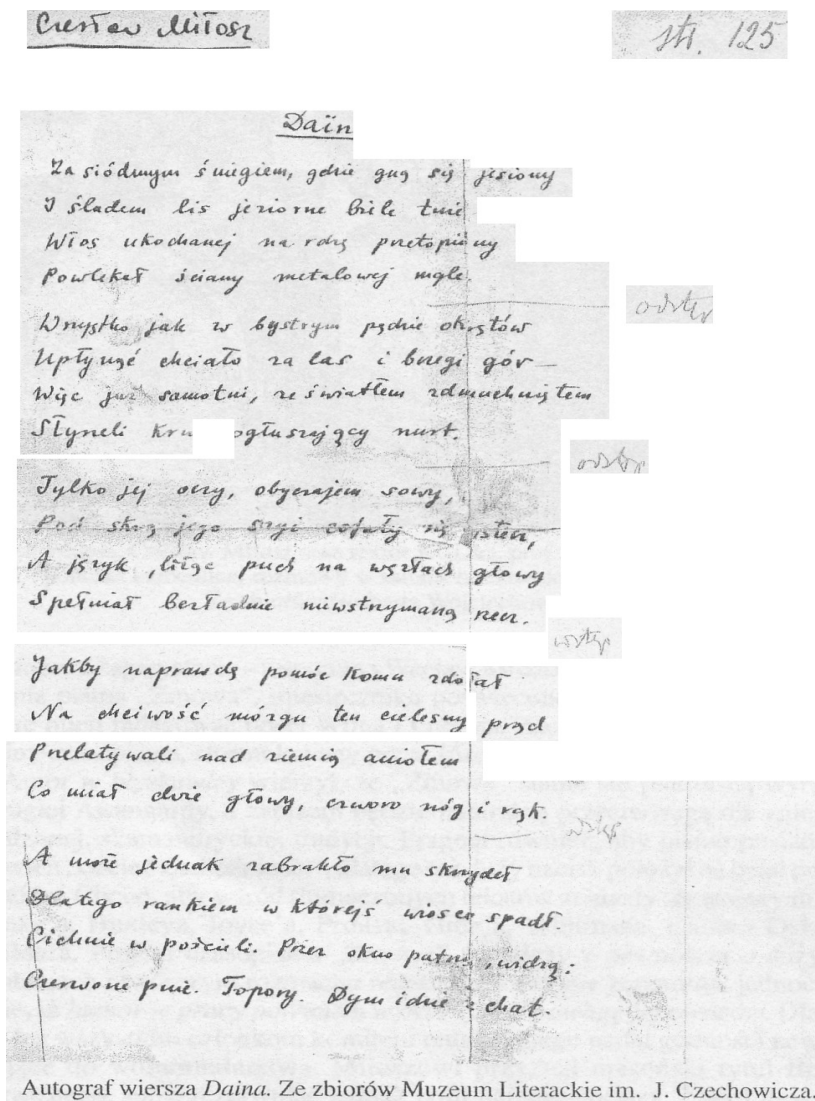 Czesław Miłosz
str. 125
Daïn
Za siódmym śniegiem, gdzie gną się jesiony
I śladem lis jeziorne biele tnie
Włos ukochanej na rdzę przetopiony
Powlekał ściany metalowej mgle.
odstęp
Wszystko jak w bystrym pędzie okrętów
Upłynąć chciało za las i brzegi gór —
Więc już samotni, ze światłem zdmuchniętem
Słyneli ogłuszający nurt.
odstęp
Tylko jej oczy, obyczajem sowy,
Pod skrę jego szyi cofały się
A język, liżąc puch na węzłach głowy
Spełniał bezładnie niewstrzymaną rzecz.
wstęp
Jakby naprawdę pomóc komu zdołał
Na chciwość mózgu ten cielesny prąd
Przelatywali nad ziemią aniołem
Co miał dwie głowy, czworo nóg i rąk.
wstęp
A może jednak zabrakło mu skrzydeł
Dlatego rankiem w której́ś wiosce spadł
Cichnie w pościeli. Przez okno patrzą, widzą:
Czerwone pnie. Topory. Dym idzie z chat.
Autograf wiersza Daina. Ze zbiorów Muzeum Literackie im. J. Czechowicza.